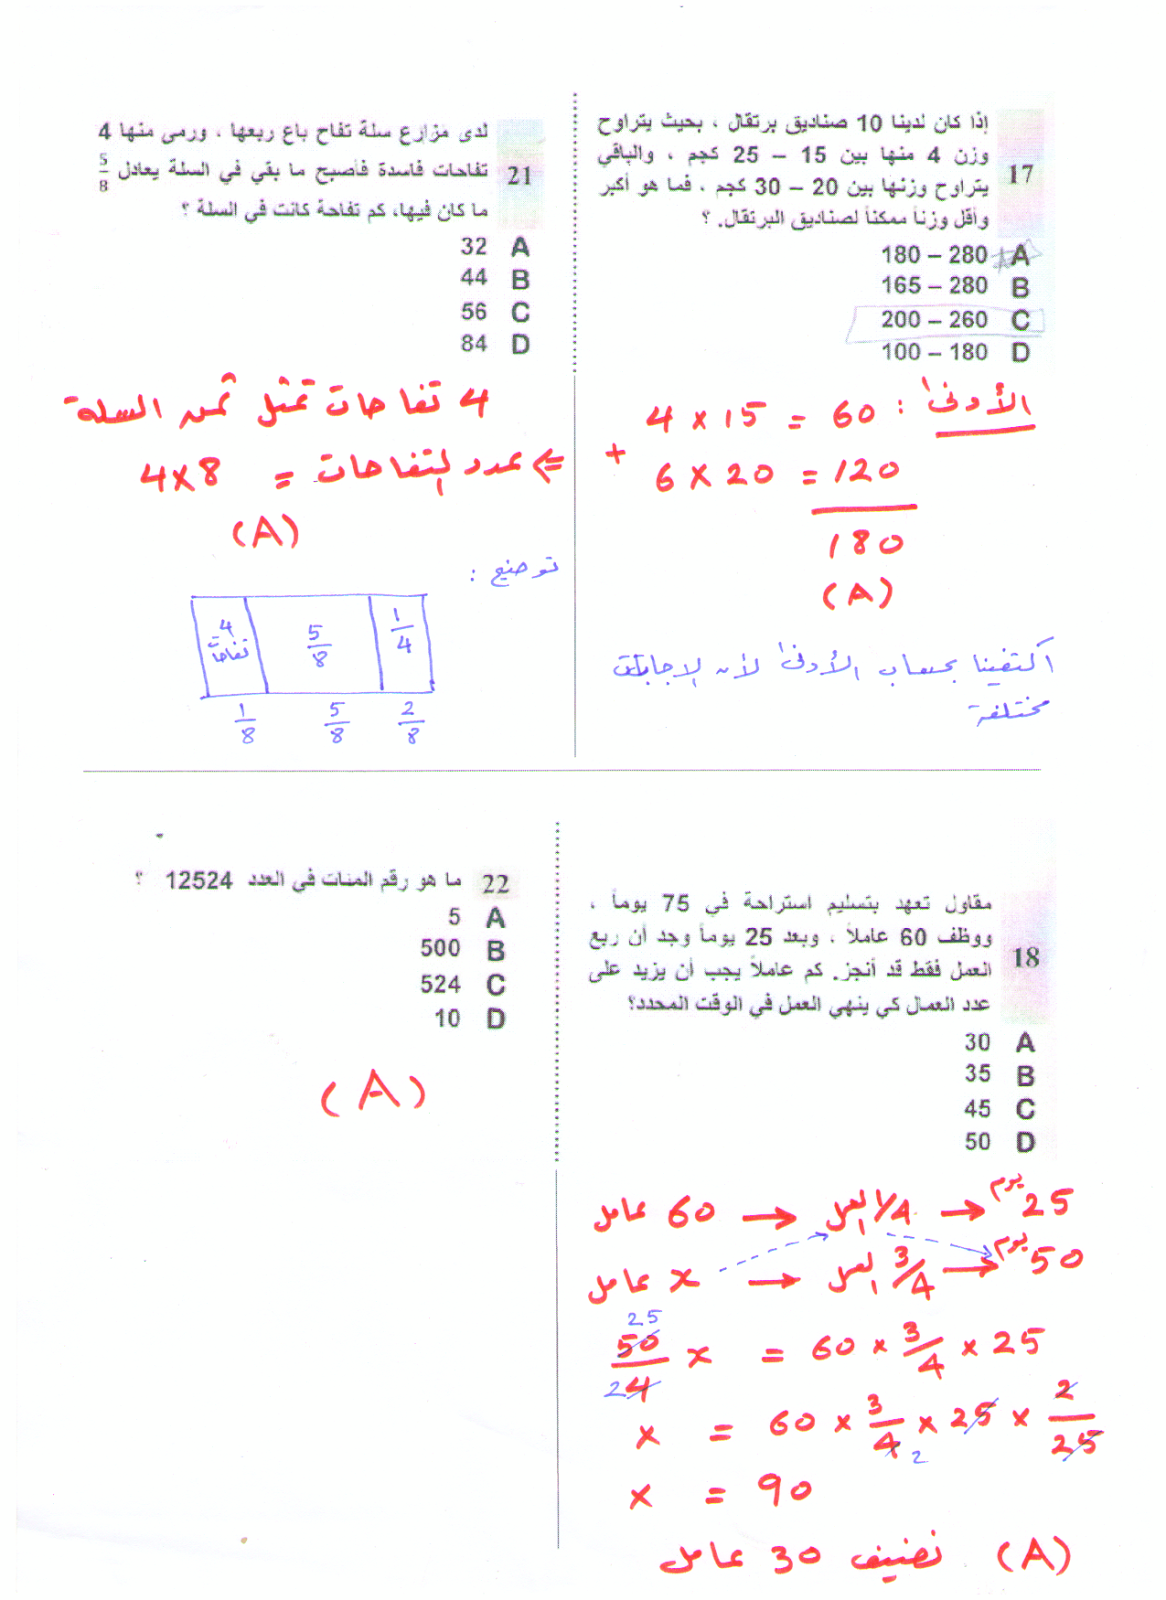 17
إذا كان لدينا 10 صناديق برتقال ، بحيث يتراوح
وزن 4 منها بين 15 – 25 كجم ، والباقي
يتراوح وزنها بين 20 – 30 كجم ، فما هو أكبر
وأقل وزناً ممكناً لصناديق البرتقال. ؟
A 180 – 280
B 165 – 280
C 200 – 260
D 100 – 180
الأدنى :
4 × 15 = 60
+
6 × 20 = 120
180
(A)
اكتفينا بحساب الأدنى لأن الإجابات
مختلفة
21
لدى مزارع سلة تفاح باع ربعها ، ورمى منها 4
تفاحات فاسدة فأصبح ما بقي في السلة يعادل 5/8
ما كان فيها، كم تفاحة كانت في السلة ؟
A 32
B 44
C 56
D 84
4 تفاحات تمثل ثمن السلة
⇐ عدد التفاحات = 4×8
(A)
توضيح :
4 تفاحات 5/8 1/4
1/8 5/8 2/8
18
مقاول تعهد بتسليم استراحة في 75 يوماً ،
ووظف 60 عاملاً ، وبعد 25 يوماً وجد أن ربع
العمل فقط قد أنجز. كم عاملاً يجب أن يزيد على
عدد العمال كي ينهي العمل في الوقت المحدد؟
A 30
B 35
C 45
D 50
60 عامل → 1/4 العمل → 25 يوم
x عامل → 3/4 العمل → 50 يوم
25
50/4 x = 60 × 3/4 × 25
2
x = 60 × 3/4 × 25 × 2/25
2
x = 90
(A) نضيف 30 عامل
22
ما هو رقم المئات في العدد 12524 ؟
A 5
B 500
C 524
D 10
(A)